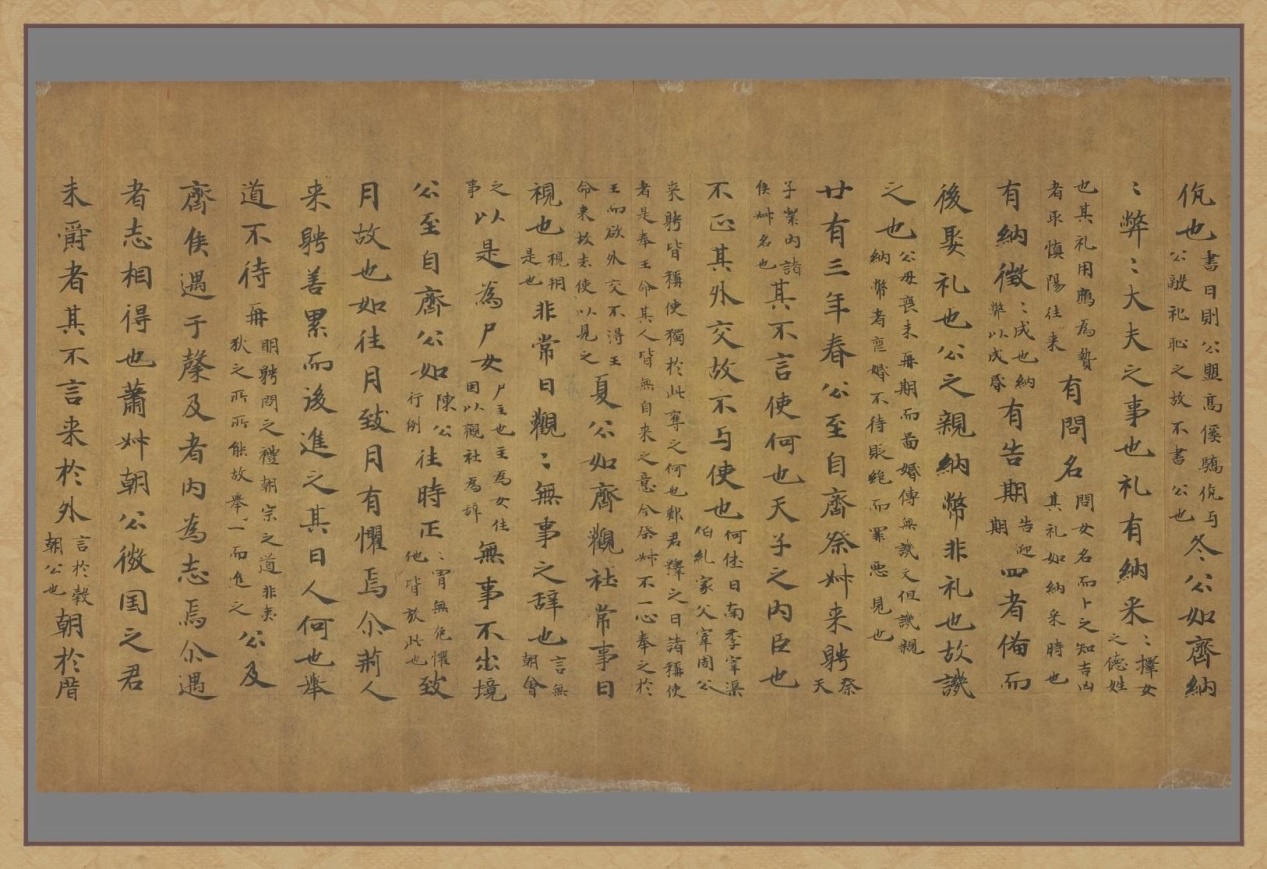 伉也書日則公盟高傒驕伉与公敵礼恥之故不書公也冬公如齊納
〻弊〻大夫之事也礼有納采〻擇女之德姓
也其礼用鴈為贄者取慎陽往来有問名問女名而卜之知吉凶其礼如納采時也
有納徵〻成也納幣以成昏有告期告迎期四者備而
後娶礼也公之親納幣非礼也故譏
之也公母喪未再期而啚婚傳無譏文但譏親納幣者喪婚不待貶絶而罪悪見也
廿有三年春公至自齊祭叔来聘祭天
子寰内諸侯叔名也其不言使何也天子之内臣也
不正其外交故不与使也何休曰南季宰渠伯糺家父宰周公
来聘皆稱使獨於此奪之何也鄭君釋之曰諸稱使者是奉王命其人皆無自来之意今祭叔不一心奉之於
王而欲外交不得王命来故去使以見之夏公如齊觀社常事曰
視也視朔是也非常曰觀〻無事之辞也言無朝會
之事以是為尸女尸主也主為女往因以觀社為辞無事不出境
公至自齊公如陳公行例往時正〻謂無危懼他皆放此也致
月故也如往月致月有懼焉尒荊人
来聘善累而後進之其曰人何也舉
道不待再明聘問之禮朝宗之道非夷狄之所所能故舉一而進之公及
齊侯遇于榖及者内為志焉尒遇
者志相得也蕭叔朝公微国之君
未爵者其不言来於外言於榖朝公也朝於庿